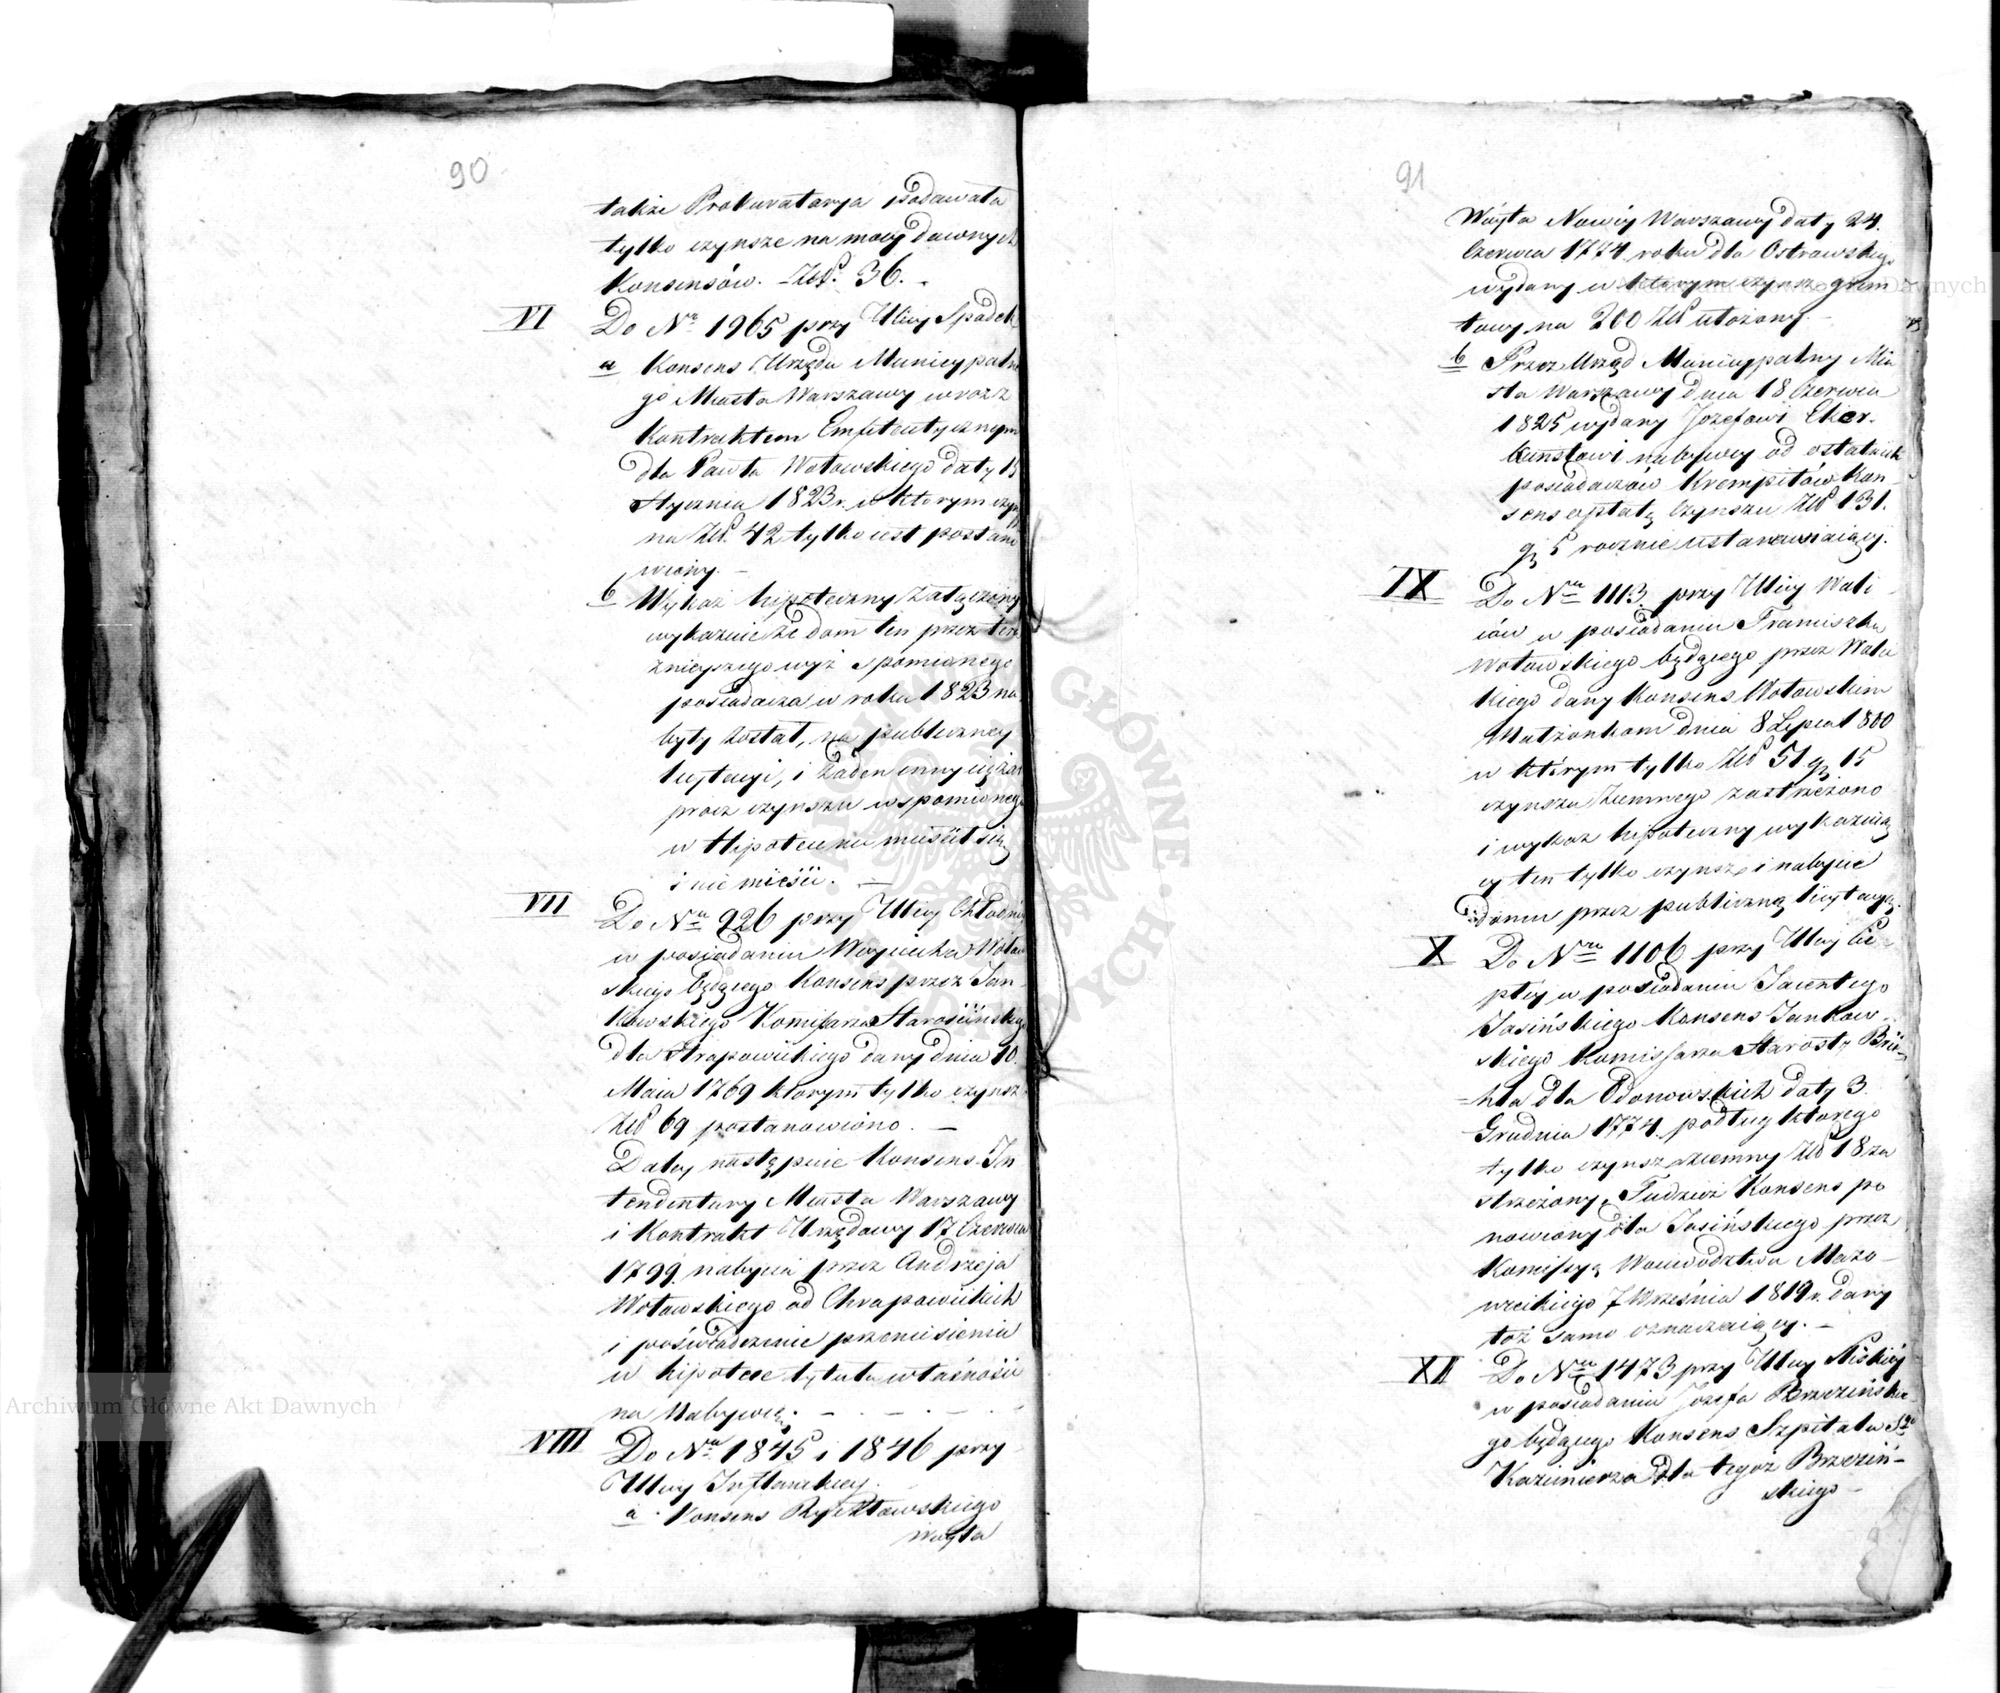 90
także Prokuratorya podawała
tylko czynsze na mocy dawnych
Konsensów. – Złp. 36. –
VI Do Nr. 1965 przy Ulicy Spadek
a Konsens Urzędu Municypalne
go Miasta Warszawy wraz z
Kontraktem Emfiteutycznym
dla Pawła Wołowskiego daty 15
Stycznia 1823 r. w którym czynsz
na Złp. 42 tylko iest postano
wiony. –
b Wykaz hipoteczny załączony
wykazuie że dom ten przez tera
znieyszego wyż spomionego
posiadacza w roku 1823 na
byty został, na publiczney
licytacyi, i żaden inny ciężar
prócz czynszu wspomionego
w Hipotece nie mieścił się
i nie mieści. –
VII Do Nru 926 przy Ulicy Chłodney
w posiadaniu Woyciecha Wołow
skiego będącego Konsens przez Jan
kowskiego Komisarza Starościńskiego
dla Chrapowickiego dany dnia 10.
Maia 1769 którym tylko czynsz
Złp 69 postanowiono. –
Daley następuie Konsens In
tendentury Miasta Warszawy
i Kontrakt Urzędowy 17 Czerwca
1799. nabycia przez Andrzeja
Wołowskiego od Chrapowickich
i poświadczenie przeniesienia
w hipotece tytułu własności
na Nabywcę. – – – –
VIII Do Nru 1845 i 1846 przy
Ulicy Inflanckiey.
a Konsens Rychłowskiego
Woyta
91
Wóyta Nowéy Warszawy daty 24.
Czerwca 1774 roku dla Ostrowskiego
wydany w którym czynsz grun
towy na 200 Złp ułożony. –
b Przez Urząd Municypalny Mia
sta Warszawy dnia 18 Czerwca
1825 wydany Jozefowi
nabywcy od ostatnich
posiadaczów Krempitów Kon
sens opłatę Czynszu Złp 131.
gr 5 rocznie ustanawiaiący.
IX Do Nru 1113. przy Ulicy Wali
ców w posiadaniu Franciszka
Wołowskiego będącego przez Wali
kiego dany Konsens Wołowskim
Małżonkom dnia 8 Lipca 1800
w którym tylko Złp 51 gr 15
czynszu ziemnego zastrzeżono
i wykaz hipoteczny wykazuią
cy ten tylko czynsz, i nabycie
domu przez publiczną licytacyą.
X Do Nru 1106 przy Ulicy Cie
płéy w posiadaniu Jacentego
Jasińskiego Konsens Jankow
skiego Komissarza Starosty Brüh
hla dla Odonowskich daty 3.
Grudnia 1774. podług którego
tylko czynsz ziemny Złp 18 za
strzeżony, Tudzież Konsens po
nowiony dla Jasińskiego przez
Komissyą Woiewództwa Mazo–
wieckiego 7 Września 1819 r. dany
toż samo oznaczaiący. –
XI Do Nru 1473 przy Ulicy Niskiéy
w posiadaniu Józefa Brzezińskie
go będącego Konsens Szpitala Sgo
Kazimierza dla tegoż Brzeziń–
skiego –
Archiwum Główne Akt Dawnych